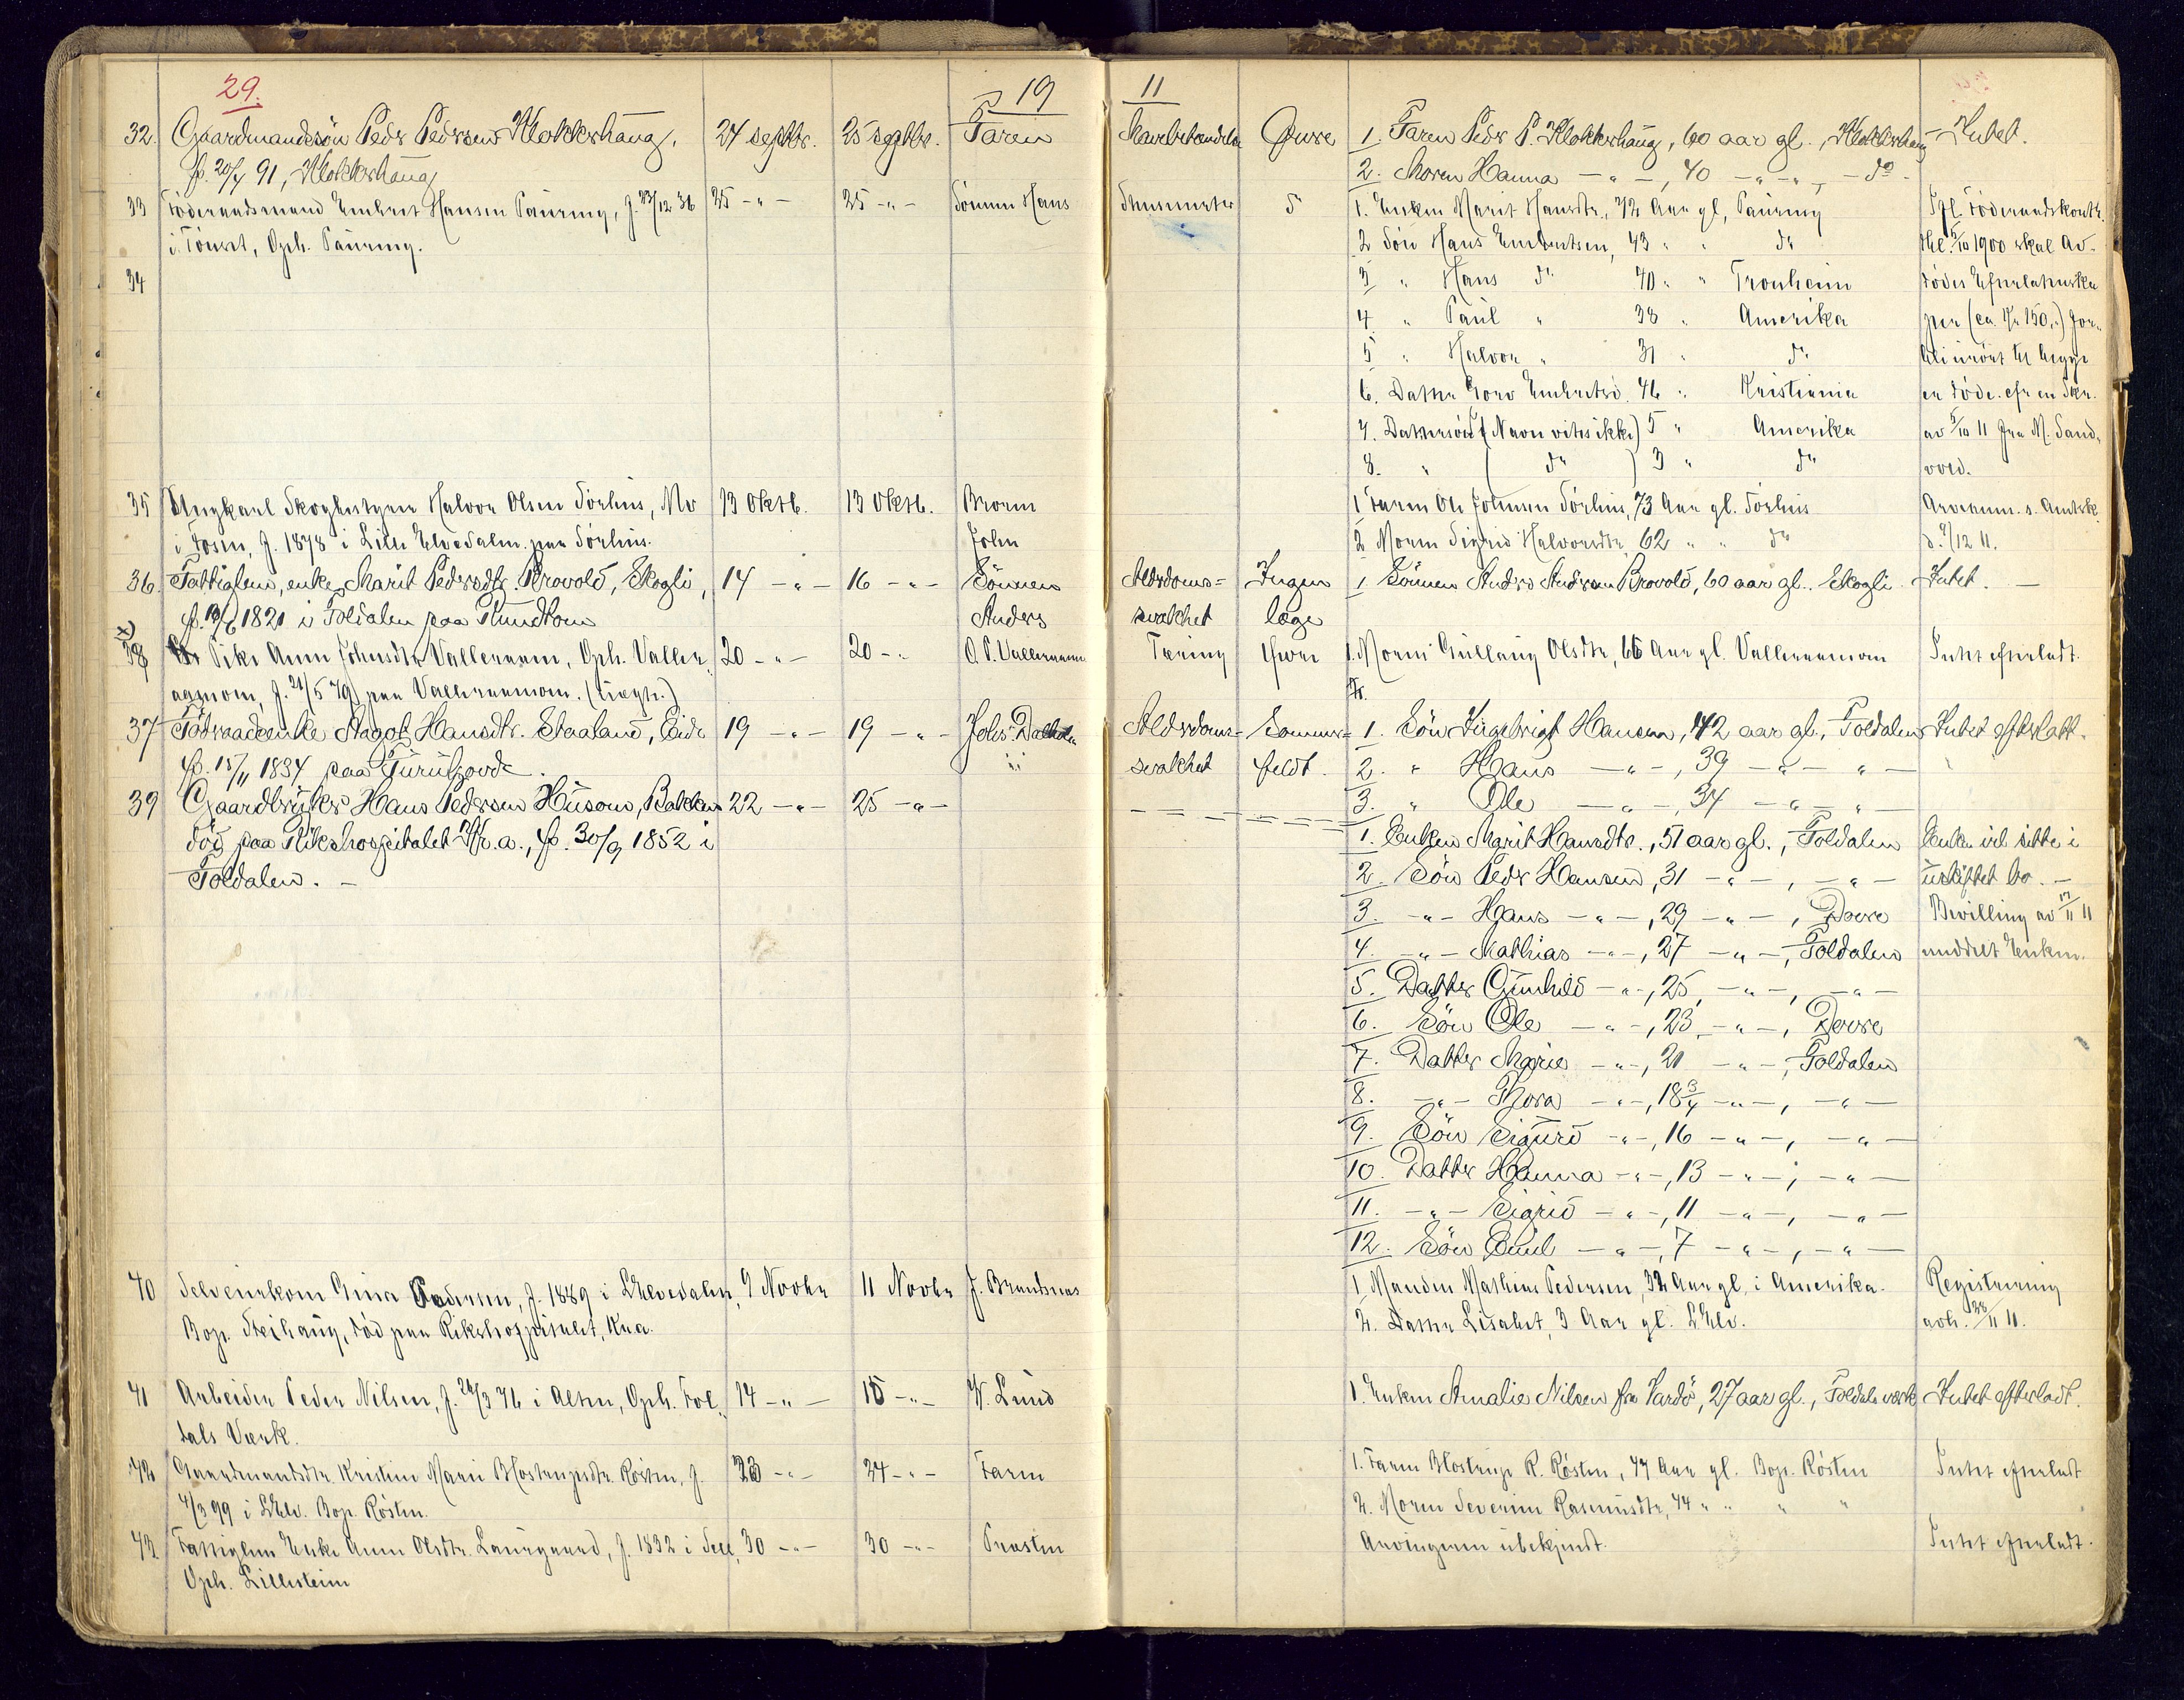 29.
19
11
32. Gaardmandssön Peder Pedersen Klokkerhaug, 24 septbr. 25 septbr. Faren
f. 20/4 91, Klokkerhaug
33 Föderaadsmand Embret Hansen Pauring, f. 23/12 36 25 -"- 25 -"- Sönnen Hans
i Tönset, Oph. Pauring.
34
35 Ungkarl Skogbestyrer Halvor Olsen Sörhus, Mo 13 Oktb. 13 Oktb. Broren
i Fosen, f. 1878 i Lille Elvedalen paa Sörhus. John
36. Fattiglem, enke Marit Pedersdtr. Brovold, Skogli, 14 -"- 16 -"- Sönnen
f. 1821 i Foldalen paa Anders
x)
38 Pike Anne Johnsdtr Valleraanen, Oph. Valler 20 -"- 20 -"- O. P. Valleraanen
aamom, f. 21/5 79 paa Valleraamom.
37 Föderaadsenke Aagot Hansdtr. Staaland, Eide 19 -"- 19 -"- Johs. Dalholen
f. 15/11 1834 paa
39 Gaardbruker Hans Pedersen Husom, Bakken 22 -"- 25 -"-
död paa Rikshospitalet Kr.a., f. 30/9 1852 i
Foldalen. -
40 Selveierkone Gina Pedersen, f. 1889 i L Elvedalen, 9 Novbr 11 Novbr J. Brandsnes
Bop. Steihaug, död paa Rikshospitalet, Kra.
41 Arbeider Peder Nilsen, f. 26/3 76 i Alten, Oph. Fol 14 -"- 15 -"- W. Lund
dals Værk.
42 Gaardmandsdtr. Kristine Marie Röstin, f. 23 -"- 24 -"- Faren
4/3 99 i LElv. Bop. Rösten.
43 Fattiglem Enke Anne Olsdtr. Laurgaard, f. 1832 i Sell, 30 -"- 30 -"- Presten
Oph. Lillesteim
Övre 1. Faren Peder P. Klokkerhaug, 60 aar gl., Klokkerhaug Intet.
2. Moren Hanna -"-, 40 -"-, - do -
do 1. Enken Marit Hansdtr., 72 Aar gl, Pauring Ifgl. Föderaadskontr.
2 Sön Hans Embretsen, 43 " " do thl. 5/10 1900 skal Av-
3 " Hans do 40 " " Tronheim dödes Efterladenska
4 " Paul " 38 " Amerika per (ca. Kr 150,-) for-
5 " Halvor " 31 " do bli urört til begge
6. Datter Embretsd. 46 " Kristiania er döde. efr en Skr.
7. Dattersön (Navn vites ikke) 5 " Amerika av 5/10 11 fra M. Sand-
8. " ( do ) 3 " do vold.
1 Faren Ole Johnsen Sörhus, 73 Aar gl. Sörhus Arveanm. s. Amtsk.
2 Moren Sigrid Halvorsdtr, 62 " " do d. 9/12 11.
Alderdoms- Ingen 1 Sönnen Anders Andersen Brovold, 60 aar gl. Skogli Intet. -
svakhet læge
Tæring 1. Moren Gullaug Olsdtr, 66 Aar gl. Valleraamom Intet efterladt.
Alderdoms- Sommer- 1. Sön Ingebrigt Hansen, 42 aar gl., Foldalen Intet efterlatt.
svakhet feldt. 2. " Hans -"-, 39 -"- " -
3. " Ole -"-, 34 -"- " -
1. Enken Marit Hansdtr., 51 aar gl., Foldalen Enken vil sitte i
2. Sön Peder Hansen, 31 -"-, -"- uskiftet bo. -
3. -"- Hans -"-, 29 -"-, Dovre Bevilling av 17/11 11
4. -"- Mathias -"-, 27 -"-, Foldalen meddelt Enken.
5. Datter Gunhild -"-, 25, -"-, -"-
6. Sön Ole -"-, 23, -"-, Dovre
7. Datter Marie -"-, 21 -"-, Foldalen
8. -"- Thora -"-, 18 3/4 -"-, -"-
9. Sön Sigurd -"-, 16 -"-, -"-
10. Datter Hanna -"-, 13 -"-, -"-
11. -"- Sigrid -"-, 11 -"-, -"-
12. Sön Paul -"-, 7 -"-, -"-
1. Manden Mathias Pedersen, 32 Aar gl. i Amerika. Registrering
2. Datter Lisabet, 3 Aar gl. LElv. avh. 28/11 11.
1. Enken Amalie Nilsen fra Vardö, 27 aar gl., Foldals verk Intet efterladt.
1. Faren R. Rösten, 47 Aar gl. Bop. Rösten Intet efterladt
2. Moren Severine Rasmusdtr, 44 " " " "
Arvingerne ubekjendt. Intet efterladt.